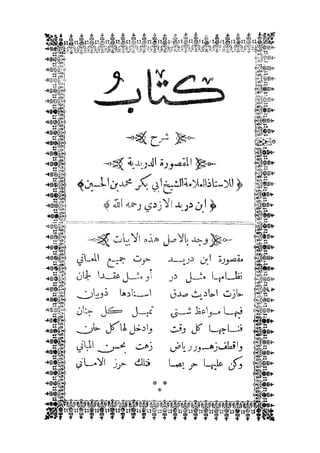 كتاب
شرح
المقصورة الدريدية
للاستاذ العلامة الشيخ ابي بكر محمد بن الحسين
ابن دريد الازدي رحمه الله
وجد بالاصل هذه الابيات
مقصورة ابن دريد حوت جميع المعاني
نظامها مثل در أو مثل عقد الجمان
حازت احاديث صدق اسنادها ذوبيان
فيها مواعظ شتى تميل كل جنان
فناجها كل وقت وادخل لها كل حان
واقطف زهور رياض زهت بحسن المباني
وكن عليها حريصا فتلك حرز الاماني